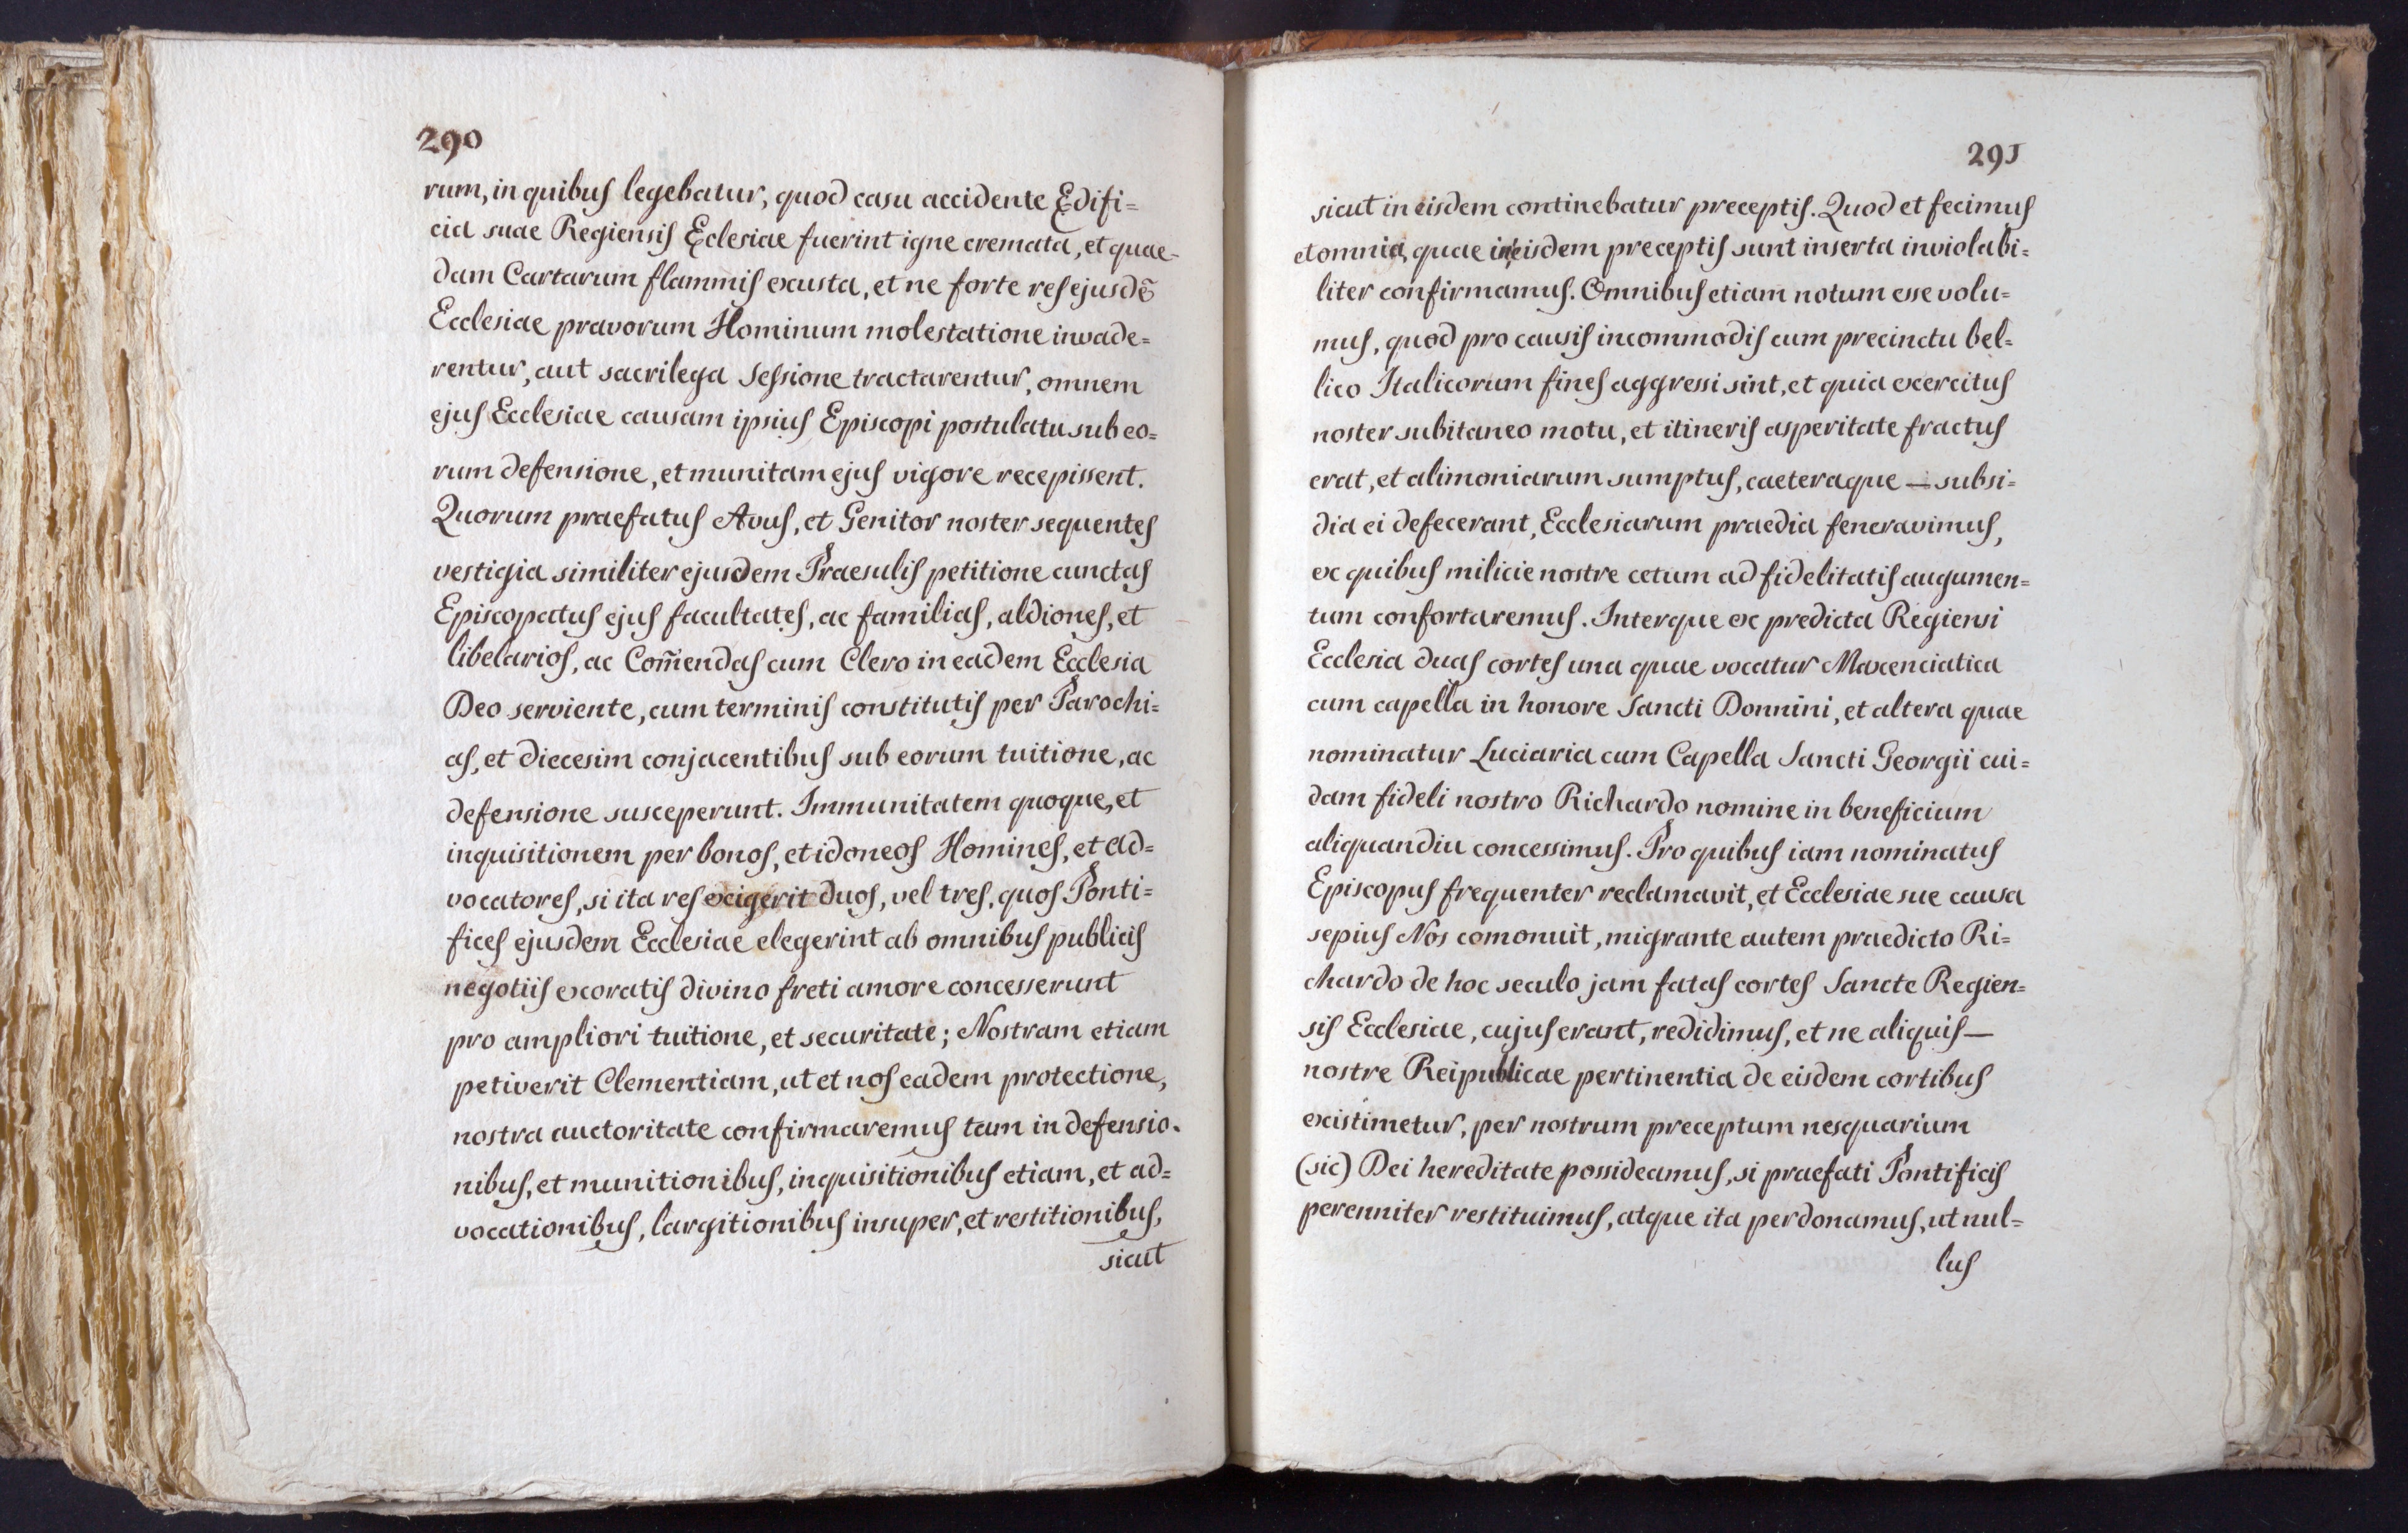 290
rum, in quibus legebatur, quod casu accidente Edifi=
cia suae Regiensis Eclesiae fuerint igne cremata, et quae-
dam Cartarum flammis exusta, et ne forte res ejusdē
Ecclesiae pravorum Hominum molestatione invade=
rentur, aut sacrilega sessione tractarentur, omnem
ejus Ecclesiae causam ipsius Episcopi postulatu sub eo=
rum defensione, et munitam ejus vigore recepissent.
Quorum praefatus Avus, et Genitor noster sequentes
vestigia similiter ejusdem Praesulis petitione cunctas
Episcopatus ejus facultates, ac familias, aldiones, et
libelarios, ac Com̄endas cum Clero in eadem Ecclesia
Deo serviente, cum terminis constitutis per Parochi=
as, et diecesim conjacentibus sub eorum tuitione, ac
defensione susceperunt. Immunitatem quoque, et
inquisitionem per bonos, et idoneos Homines, et ad=
vocatores, si ita res exigerit duos, vel tres, quos Ponti=
fices ejusdem Ecclesiae elegerint ab omnibus publicis
negotiis exoratis divino freti amore concesserunt
pro ampliori tuitione, et securitate; Nostram etiam
petiverit Clementiam, ut et nos eadem protectione,
nostra auctoritate confirmaremus tam in defensio-
nibus, et munitionibus, inquisitionibus etiam, et ad=
vocationibus, largitionibus insuper, et restitionibus,
sicut
291
sicut in eisdem continebatur preceptis. Quod et fecimus
et omnia, quae in eisdem preceptis sunt inserta inviolabi=
liter confirmamus. Omnibus etiam notum esse volu=
mus, quod pro causis incommodis cum precinctu bel=
lico Italicorum fines aggressi sint, et quia exercitus
noster subitaneo motu, et itineris asperitate fractus
erat, et alimoniarum sumptus, caeteraque — subsi=
dia ei defecerant, Ecclesiarum praedia feneravimus,
ex quibus milicie nostre cetum ad fidelitatis augumen=
tum confortaremus. Interque ex predicta Regiensi
Ecclesia duas cortes una quae vocatur Maxenciatica
cum capella in honore Sancti Donnini, et altera quae
nominatur Luciaria cum Capella Sancti Georgii cui=
dam fideli nostro Richardo nomine in beneficium
aliquandiu concessimus. Pro quibus iam nominatus
Episcopus frequenter reclamavit, et Ecclesiae sue causa
sepius Nos comonuit, migrante autem praedicto Ri=
chardo de hoc seculo jam fatas cortes Sancte Regien=
sis Ecclesiae, cujus erant, redidimus, et ne aliquis —
nostre Reipublicae pertinentia de eisdem cortibus
existimetur, per nostrum preceptum nesquarium
(sic) Dei hereditate possideamus, si praefati Pontificis
perenniter restituimus, atque ita perdonamus, ut nul=
lus